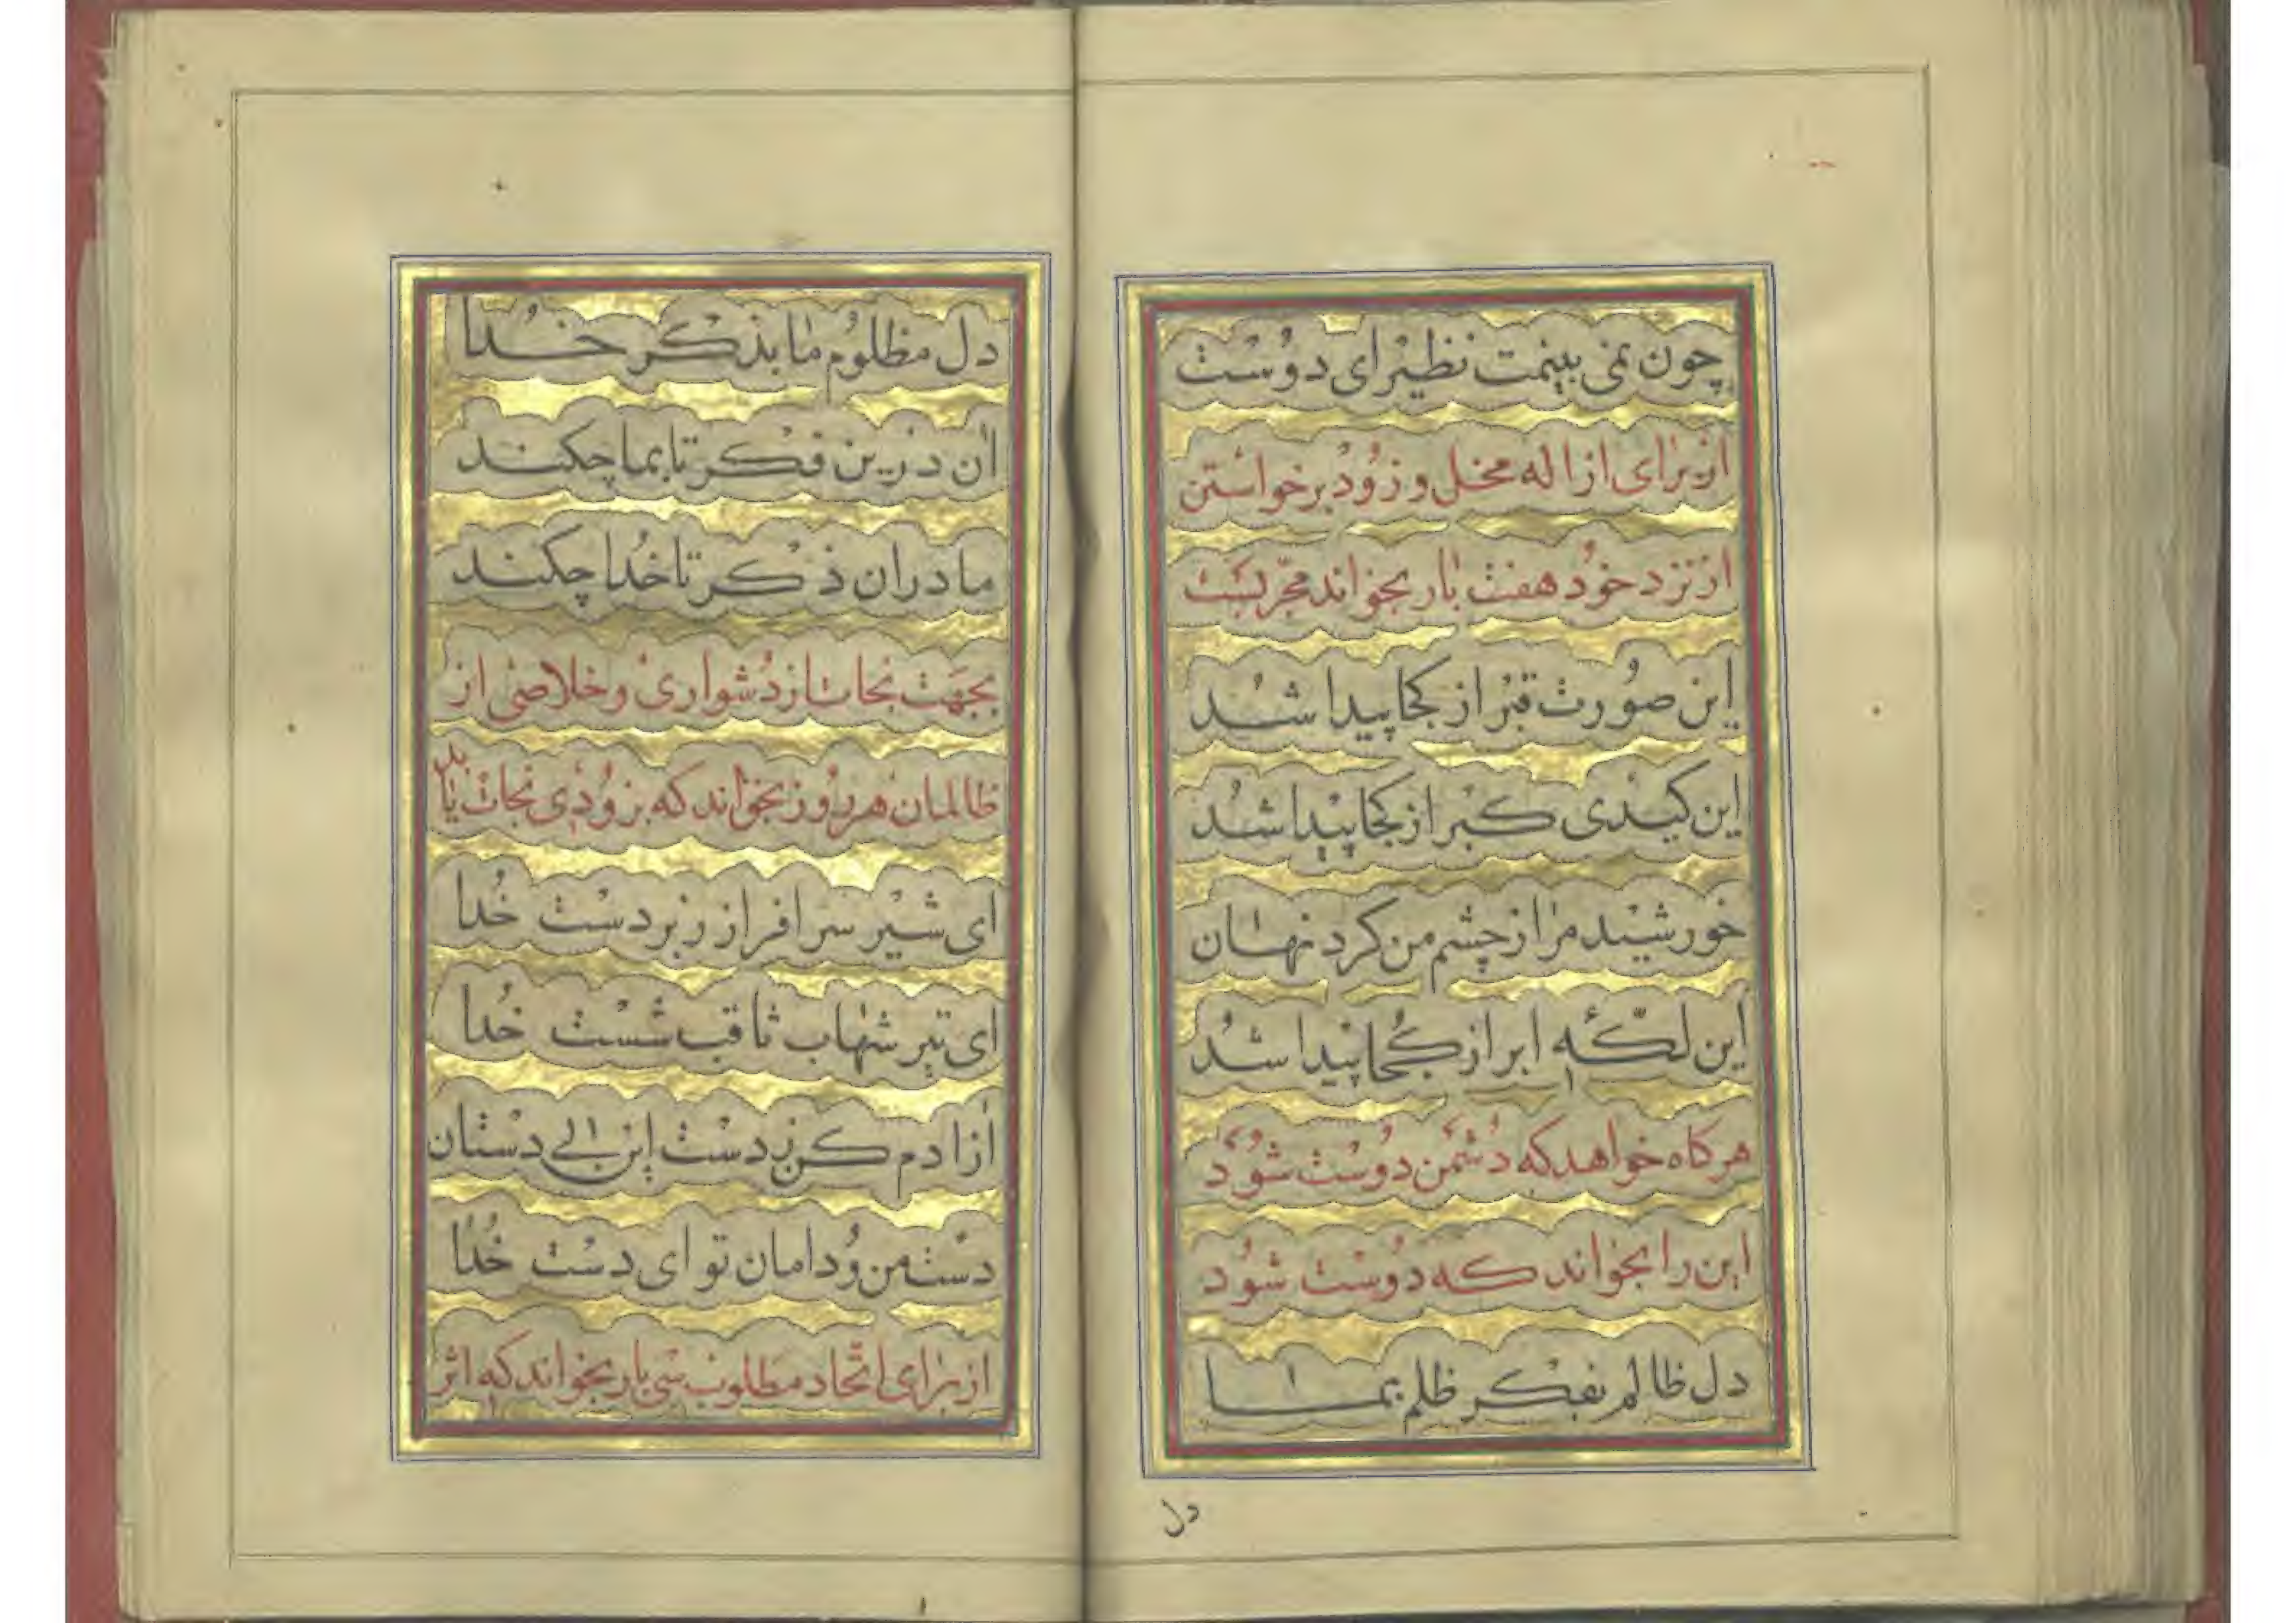 چون نمی بینمت نظیر ای دوست
از برای ازاله مخل و زود برخواستن
از نزد خود هفت بار بخواند مجربست
این صورت قبر از کجا پیدا شد
این کیدی کبر از کجا پیدا شد
خورشید مرا ز چشم من کرد نهان
این لکّهٔ ابر از کجا پیدا شد
هر کاه خواهد که دشمن دوست شود
این را بخواند که دوست شود
دل ظالم بفکر ظلم بما
دل
دل مظلوم ما بذکر خدا
آن درین فکر تا بما چکند
ما در آن ذکر تا خدا چکند
بجهت نجات از دشواری و خلاصی از
ظالمان هر روز بخواند که بزودی نجات یابد
ای شیر سرافراز زبردست خدا
ای تیر شهاب ثاقب شست خدا
آزادم کن ز دست این دستان
دست من و دامان تو ای دست خدا
از برای اتّحاد مطلوب سی بار بخواند که اثر